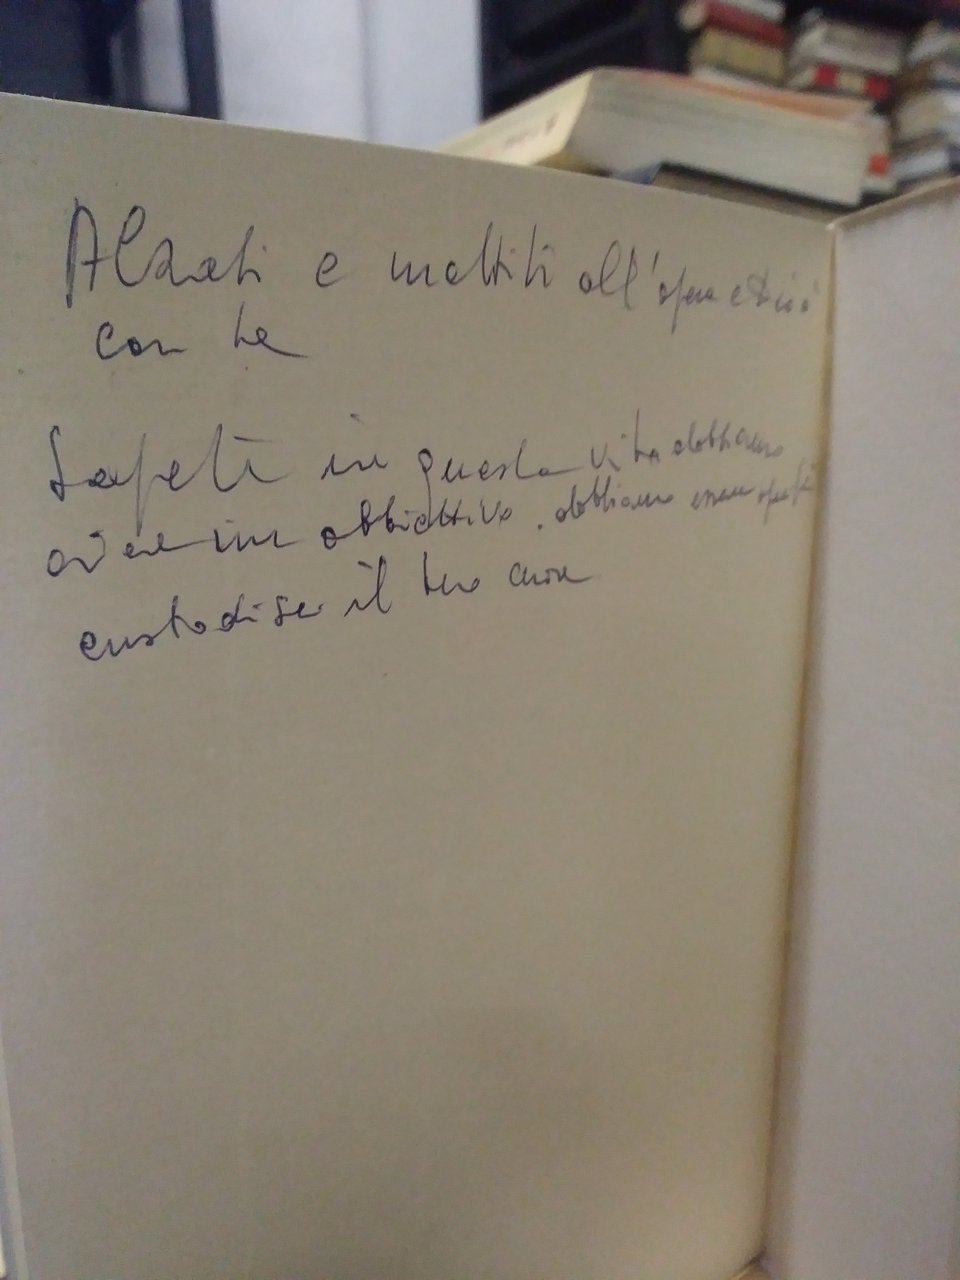 Alzati e mettiti all'opera e Dio
con te
Sapete in questa vita dobbiamo
avere un obbiettivo. dobbiamo essere
custodisci il tuo cuore